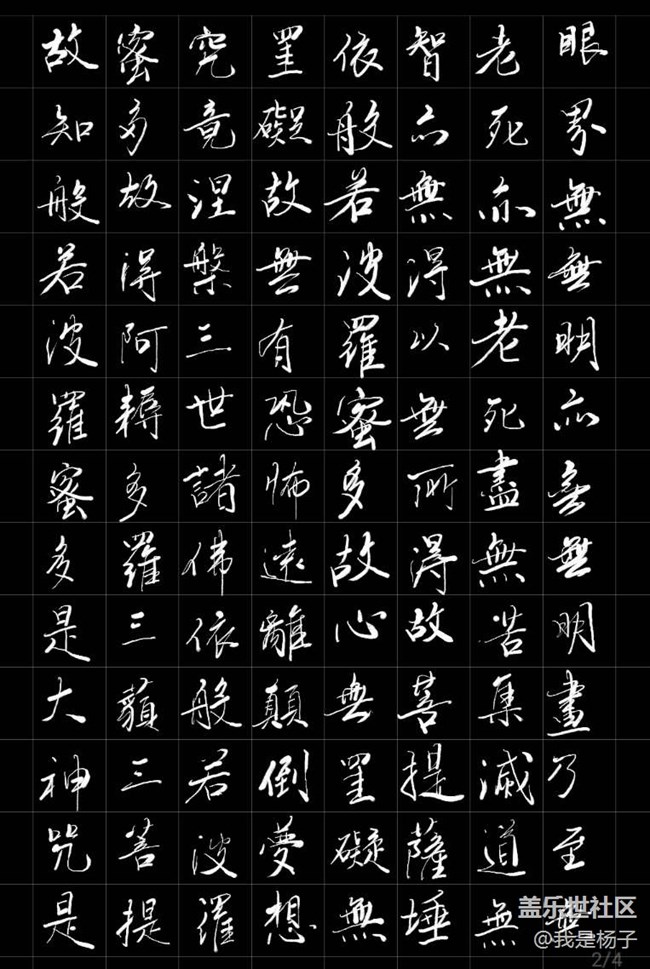 眼界無無明亦無無明盡乃至無
老死亦無老死盡無苦集滅道無
智亦無得以無所得故菩提薩埵
依般若波羅蜜多故心無罣礙無
罣礙故無有恐怖遠離顛倒夢想
究竟涅槃三世諸佛依般若波羅
蜜多故得阿耨多羅三藐三菩提
故知般若波羅蜜多是大神咒是
盖乐世社区
@我是杨子
2/4